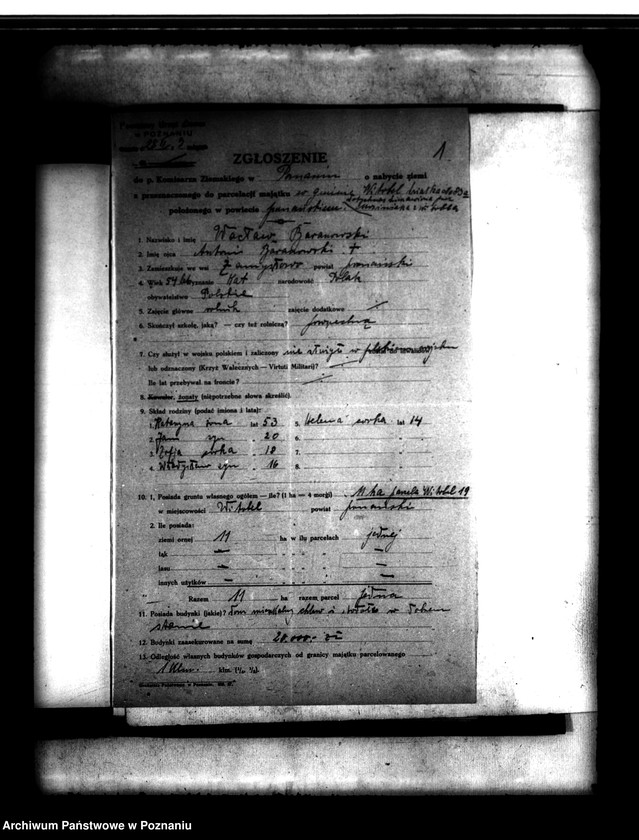 W POZNANIU
1
ZGŁOSZENIE
do p. Komisarza Ziemskiego w Poznaniu o nabycie ziemi
z przeznaczonego do parcelacji majątku w gminie Witobel
położonego w powiecie poznańskiem
1. Nazwisko i imię Wacław Baranowski
2. Imię ojca Antoni Baranowski +
3. Zamieszkuje we wsi powiat poznański
4. Wiek 54 lat wyznanie Kat narodowość Polak
obywatelstwo Polskie
5. Zajęcie główne rolnik zajęcie dodatkowe
6. Skończył szkołę, jaką? — czy też rolniczą? powszechną
7. Czy służył w wojsku polskiem i zaliczony nie służył w polskiem wojsku
lub odznaczony (Krzyż Walecznych — Virtuti Militari)?
Ile lat przebywał na froncie?
8. Kawaler, żonaty (niepotrzebne słowa skreślić).
9. Skład rodziny (podać imiona i lata):
1. Katarzyna żona lat 53 5. Helena córka lat 14
2. Jan syn " 20 6. "
3. Zofja córka " 18 7. "
4. Władysław syn " 16 8. "
10. 1. Posiada gruntu własnego ogółem — ile? (1 ha — 4 morgi) 11 ha parcela Witobel 19
w miejscowości Witobel powiat poznański
2. Ile posiada:
ziemi ornej 11 ha w ilu parcelach jednej
łąk — " " " —
lasu — " " " —
innych użytków — " " " —
Razem 11 ha razem parcel jedna
11. Posiada budynki (jakie)? dom mieszkalny chlew i stodołę w dobem
stanie
12. Budynki zaasekurowane na sumę 20.000.- zł
13. Odległość własnych budynków gospodarczych od granicy majątku parcelowanego
1 klm. klm. (¹/₂, ¹/₄).
Archiwum Państwowe w Poznaniu